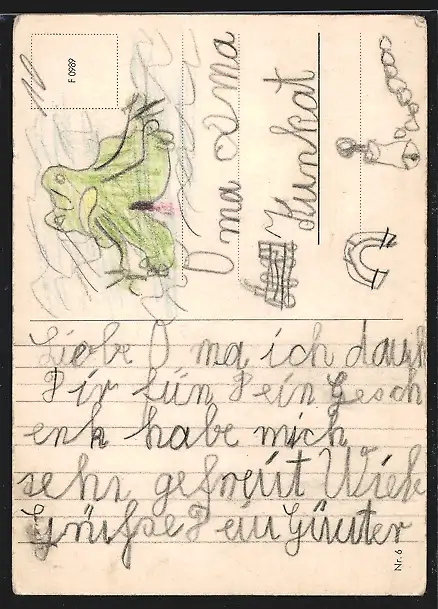 F 0989
Oma Oma
Kunkat
Liebe O ma ich dank
Dir für Dein Gesch
enk habe mich
sehr gefreut Viele
Grüße Dein Günter
Nr. 6